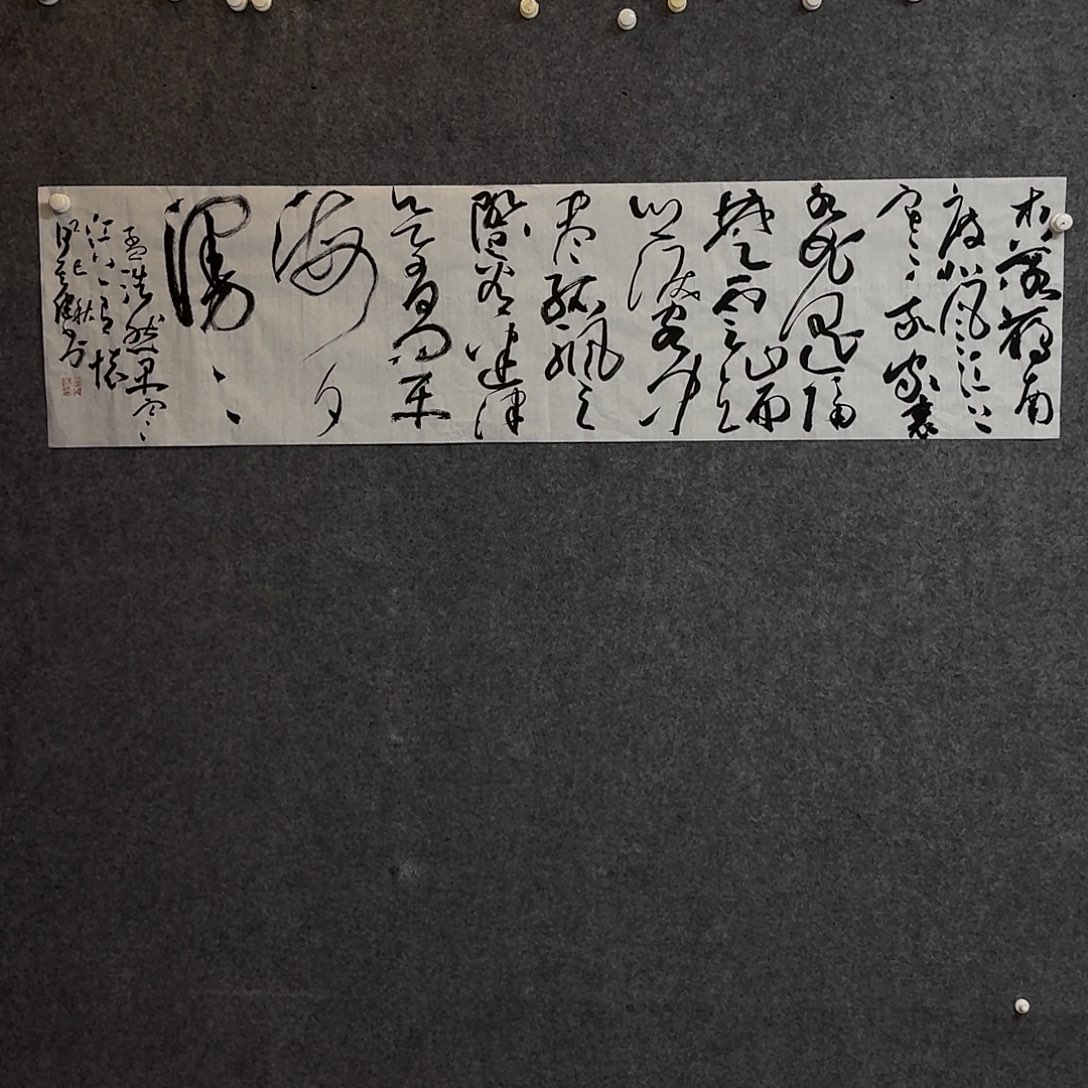 木落雁南
度北风江上
寒我家襄
水曲遥隔
楚云端
乡泪客中
尽孤帆天
际看迷津
欲有问平
海夕
漫〻
孟浩然早寒
江上有怀
乙巳秋
书